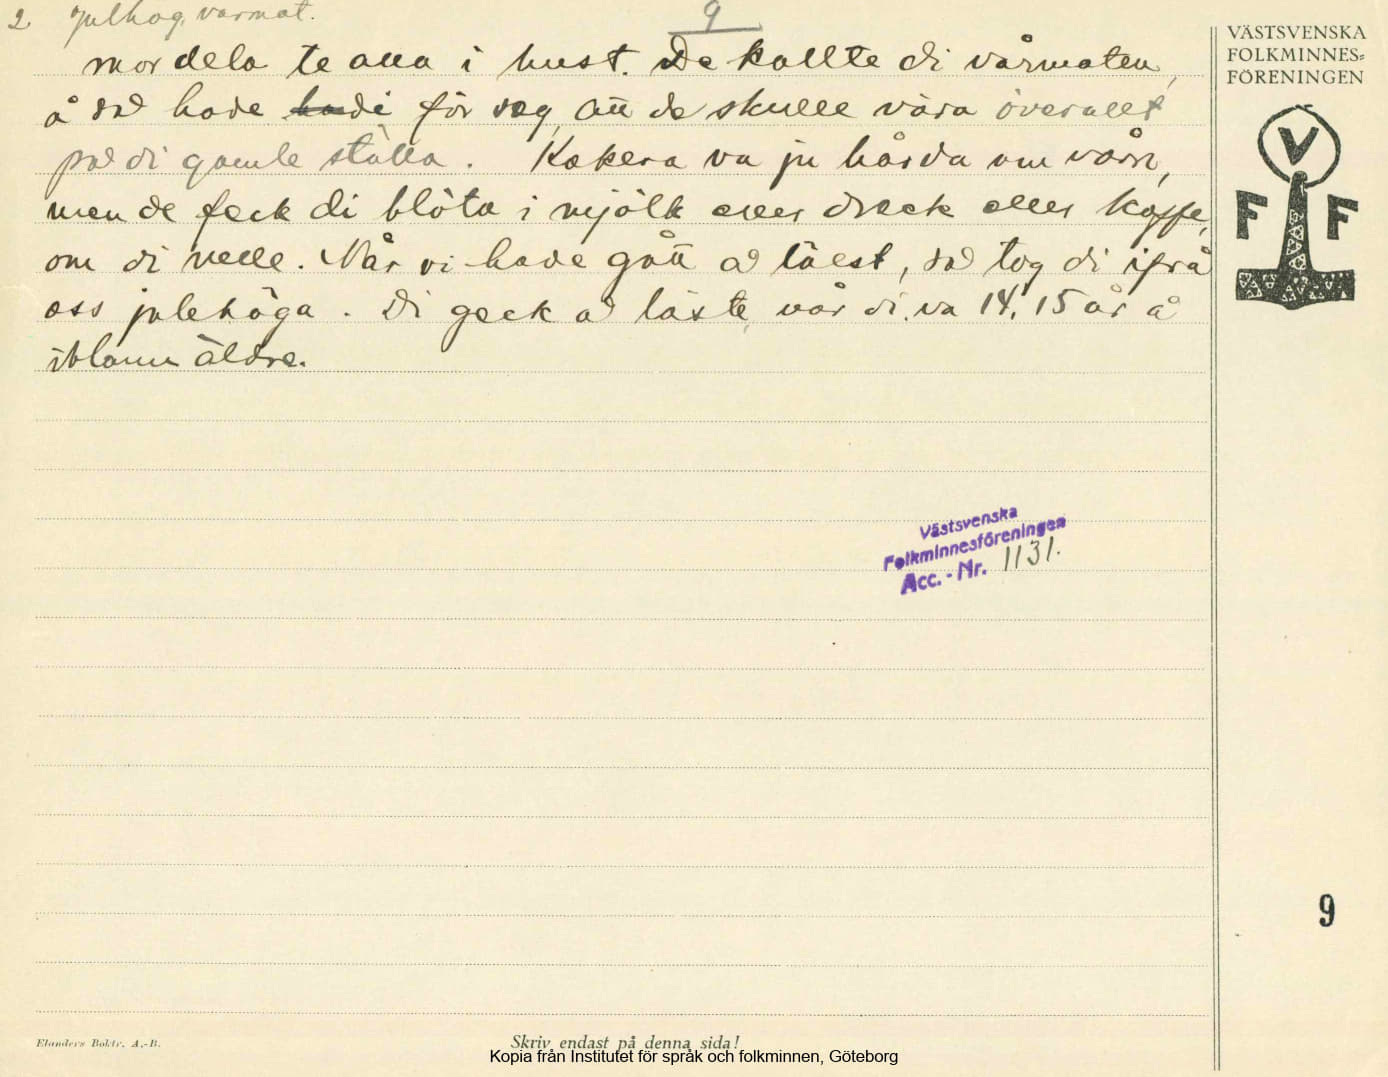 2 Julhög, vårmat.
9
VÄSTSVENSKA
FOLKMINNES=
FÖRENINGEN
V
F F
mor dela te alla i hust. De kallte di vårmaten,
å så hade di för seg, att de skulle våra överallt
på di gamle ställa. Kakera va ju hårda om vårn,
men de feck di blöta i mjölk eller drecke eller kaffe,
om di velle. När vi hade gått å läest, så tog di ifrå
oss julehöga. Di geck å läste, när di va 14, 15 år å
iblann äldre.
Västsvenska
Folkminnesföreningen
Acc. - Nr. 1131.
9
Elanders Boktr. A.-B.
Skriv endast på denna sida!
Kopia från Institutet för språk och folkminnen, Göteborg